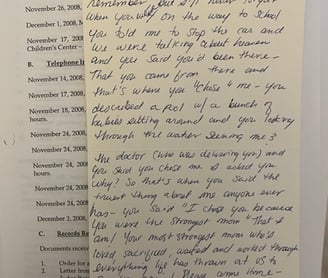 November 26, 2008,
December 1, 2008, M
November 17, 2008
Children's Center –
B. Telephone In
November 14, 2008,
November 17, 2008,
November 18, 2008
hours.
November 24, 2008,
November 24, 2008,
November 24, 2008
November 24, 2008
November 24, 2008
November 24, 2008
December 2, 2008,
C. Records Re
Documents receive
1. Order for
2. Letter from
remember but I'll never forget
when you were on the way to school
you told me to stop the car and
we were talking about heaven
and you said you'd been there –
That you came from there and
that's where you "chose" me – you
described a pool w/ a bunch of
babies sitting around and you looking
through the water seeing me &
the doctor (who was delivering you) and
you said you chose me. I asked you
why? So that's when you said the
truest thing about me anyone ever
has – you said "I chose you because
you were the strongest mom" That I
am! Your most strongest mom who's
loved, sacrificed, waited and worked through
everything life has thrown at us to
Please come home –